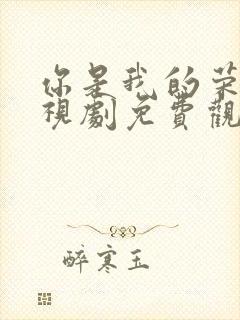 你是我的荣
視劇免費觀
醉寒玉